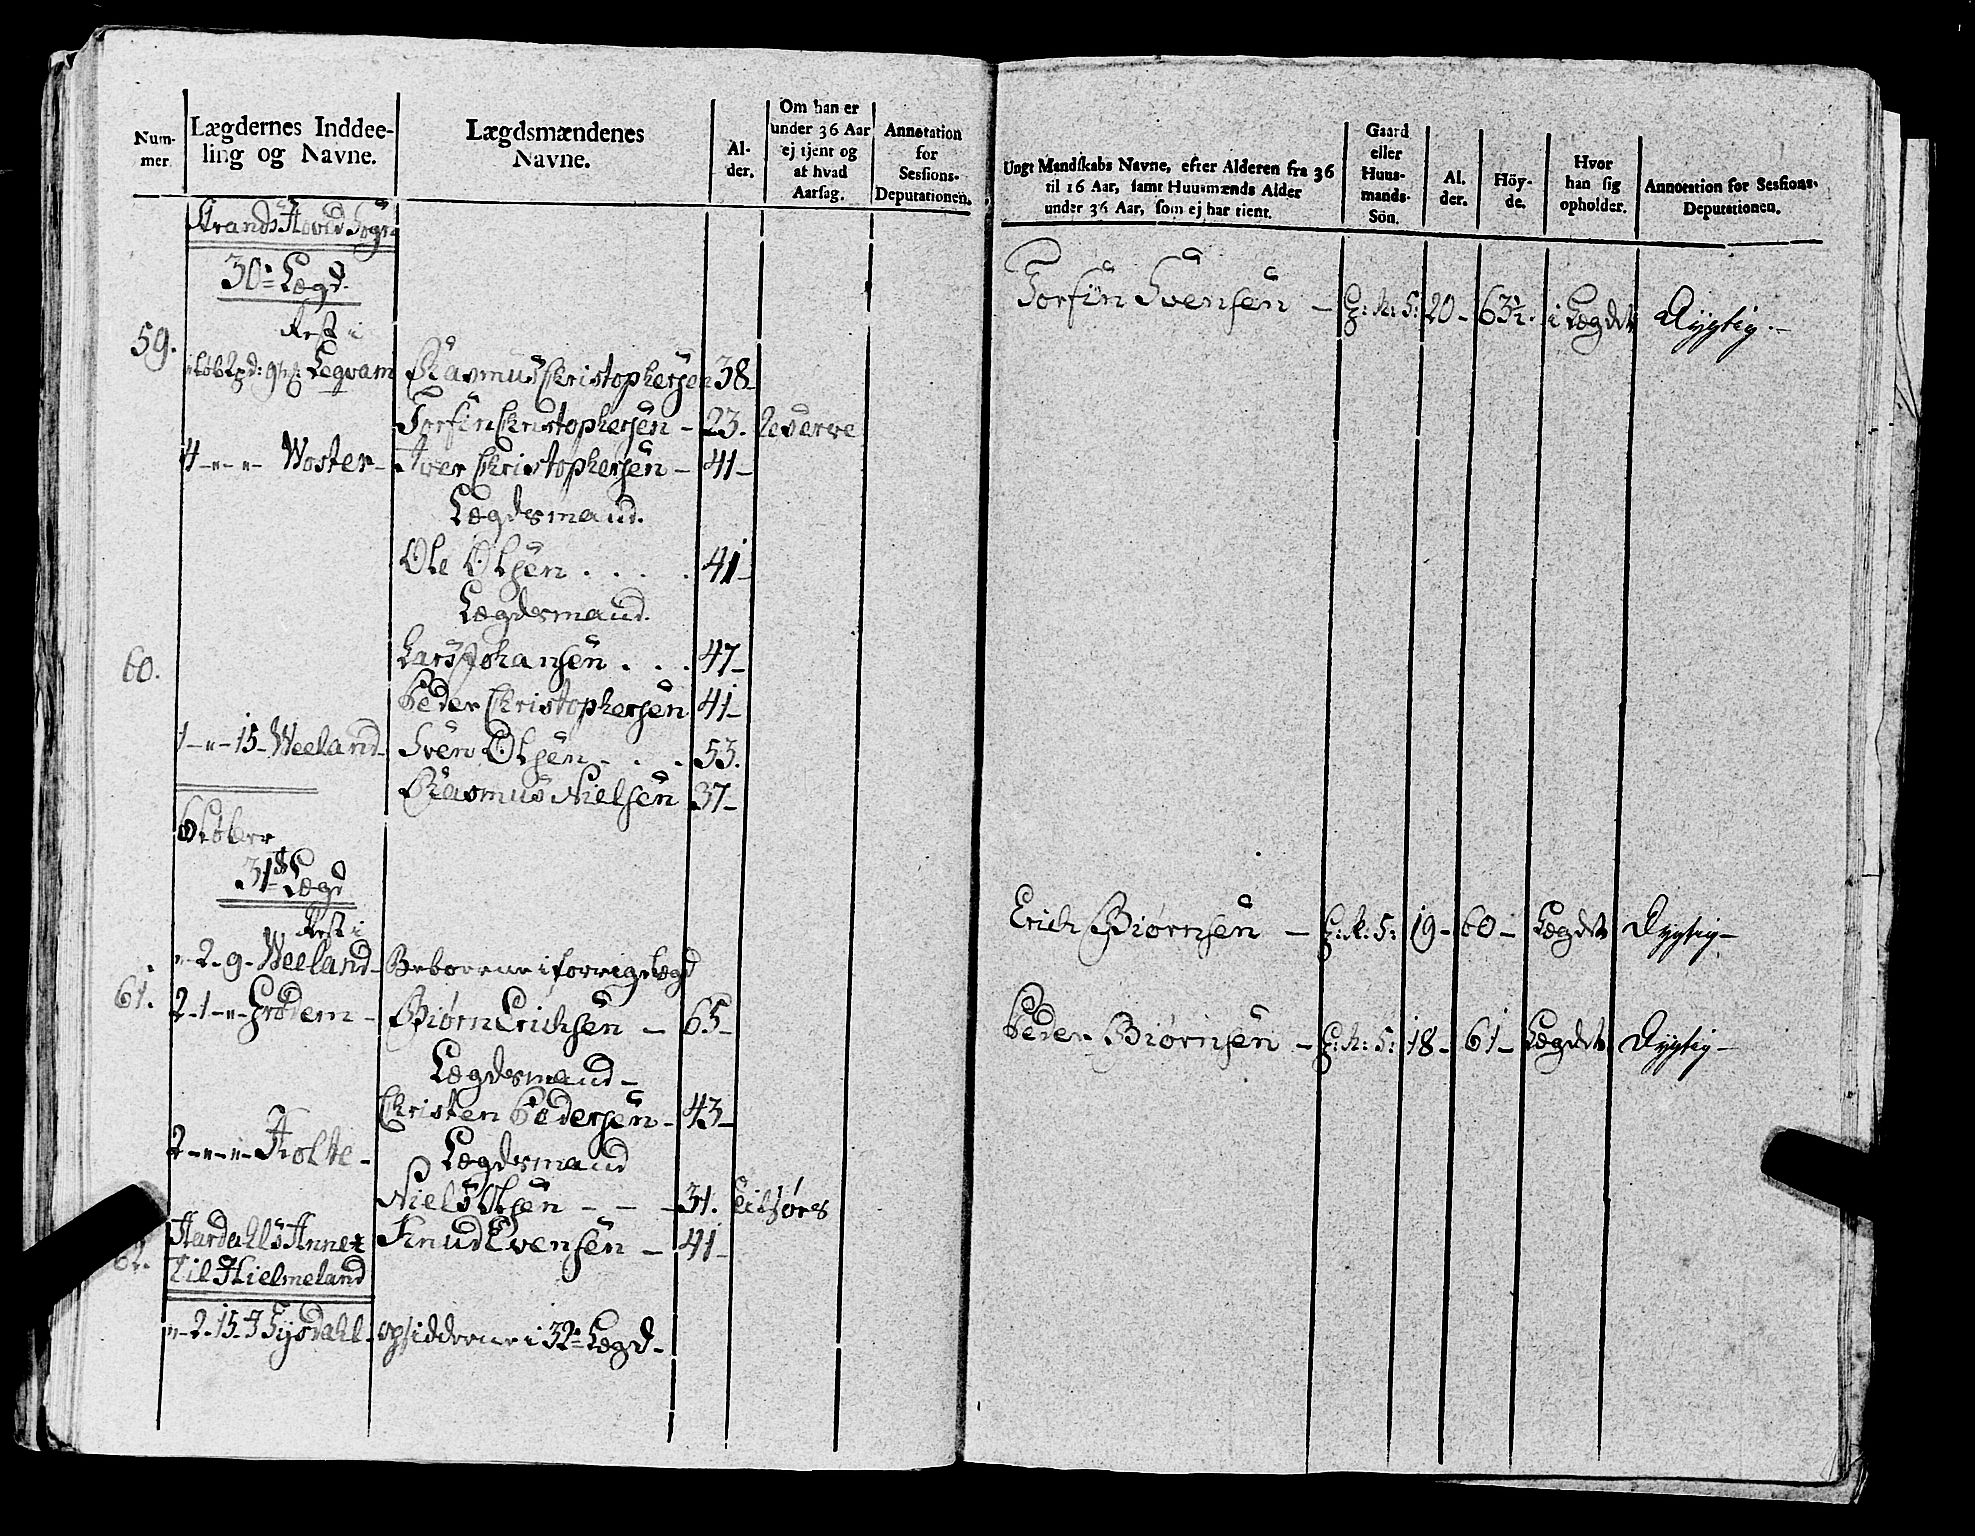 Num-
mer.
Lægdernes Inddee-
ling og Navne.
Lægdsmændenes
Navne.
Al-
der.
Om han er
under 36 Aar
ej tjent og
af hvad
Aarsag.
Annotation
for
Sessions-
Deputationen.
Strands Hovd Sogn
30te Lægd.
Rest i
59.
Legvam Rasmus Christophersen 38-
Torfin Christophersen - 23. Reserve
4 - " - " - Woster - Iver Christophersen - 41-
Lægdsmand.
Ole Olsen . . . . 41-
Lægdsmand.
60. Lars Johansen . . . 47-
Peder Christophersen 41-
1 - " - 15 - Weeland - Sven Olsen - . . 53.
Rasmus Nielsen 37-
31te Lægd
Rest i
" - 2 - 9 - Weeland - Beboerne i forrige Lægd
61. 2 - 1 - " - Grødem - Biørn Erichsen - 65-
Lægdsmand -
Christen Pedersen - 43-
2 - " - " - Holte - Lægdsmand
Niels Olsen - - - 31.
62. Aardahls Annex Knud Evensen - 41-
til Hielmeland
" - 2 - 15 - 3 Fysdahl - opsidderne i 32te Lægd -
Ungt Mandskabs Navne, efter Alderen fra 36
til 16 Aar, samt Huusmænds Alder
under 36 Aar, som ej har tient.
Gaard
eller
Huus-
mands-
Sön.
Al-
der.
Höy-
de.
Hvor
han sig
opholder.
Annotation for Sessions-
Deputationen.
Torfin Svensen - G: K: S: 20 - 63½. i Lægdet Dygtig. -
Erich Biørnsen - G: K: S: 19 - 60 - Lægdet Dygtig -
Peder Biørnsen - G: K: S: 18 - 61 - Lægdet Dygtig -